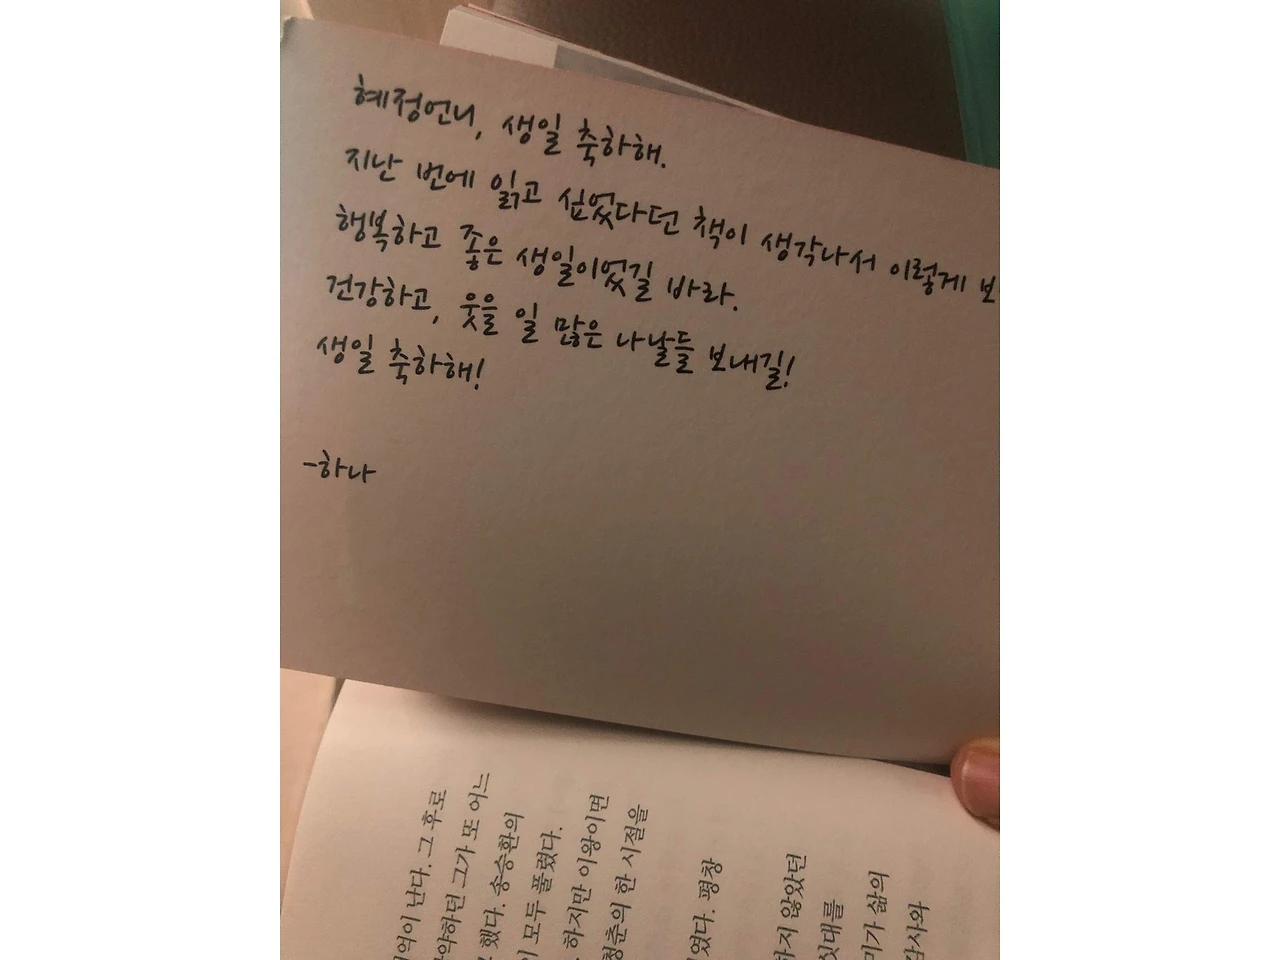 혜정언니, 생일 축하해.
지난 번에 읽고 싶었다던 책이 생각나서 이렇게 보
행복하고 좋은 생일이었길 바라.
건강하고, 웃을 일 많은 나날들 보내길!
생일 축하해!
-하나
억이 난다. 그 후로
악하던 그가 또 어느
했다. 송승환의
모두 풀렸다.
하지만 이왕이면
청춘의 한 시절을
였다. 평창
하지 않았던
잣대를
삶의
감사와